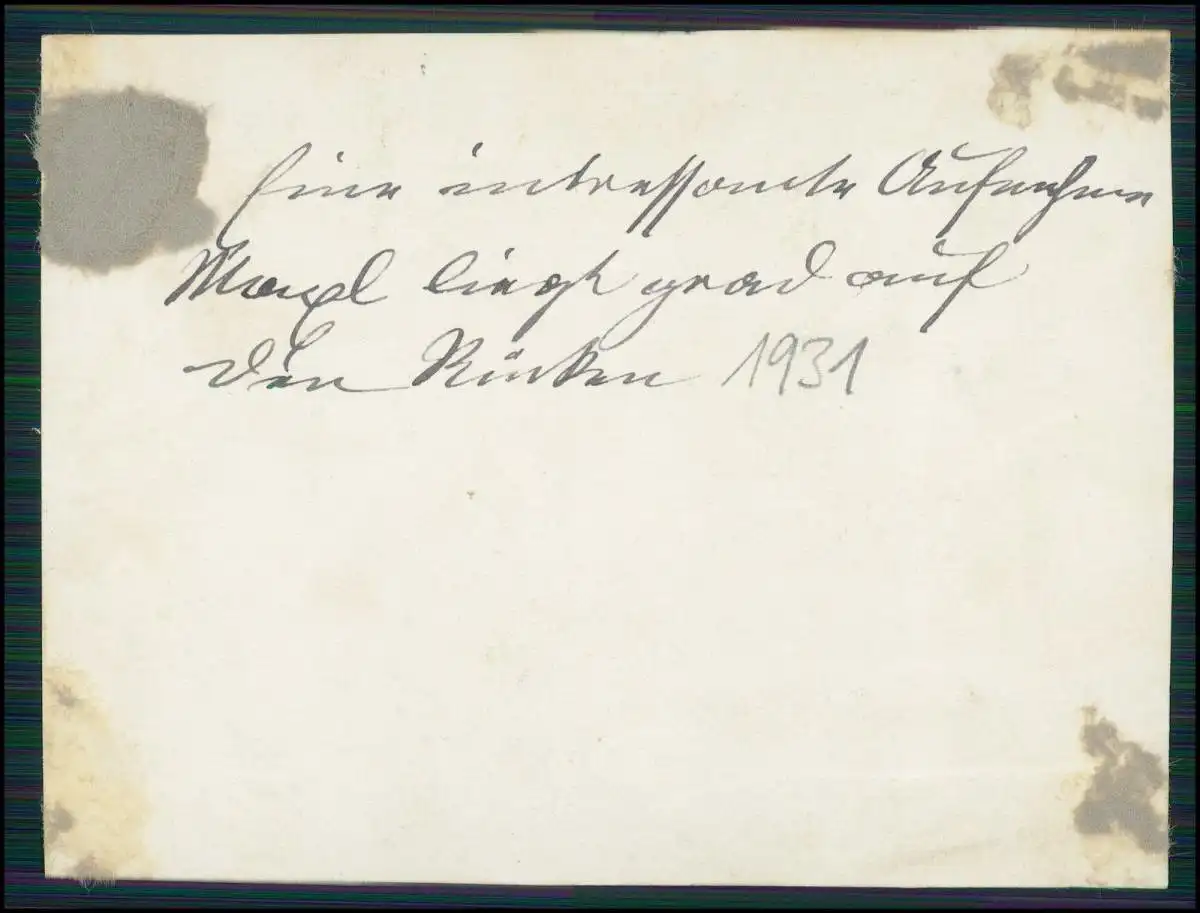 Eine intressante Aufnahme
Maxel liegt grad auf
den Rücken 1931